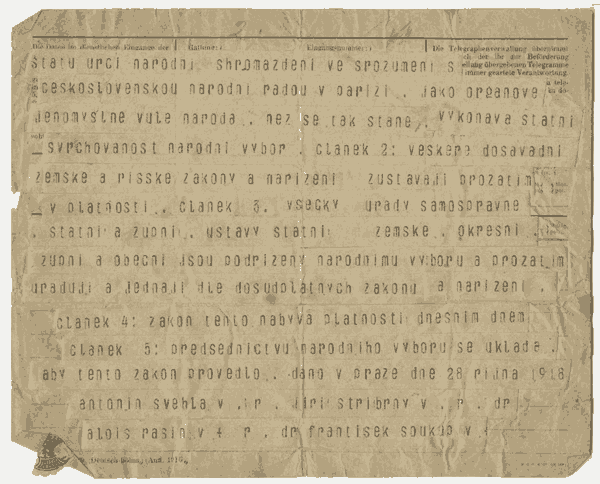 Die Telegraphenverwaltung übernimmt
statu urci narodni shromazdeni ve srozumeni s
ceskoslovenskou narodni radou v parizi . jako organove
jenomyslne vule naroda . nez se tak stane . vykonava statni
svrchovanost narodni vybor . clanek 2: veskere dosavadni
zemske a risske zakony a narizeni zustavaji prozatim
v platnosti . clanek 3. vsecky urady samospravne
. statni a zupni . ustavy statni zemske . okresni .
zupni a obecni jsou podrizeny narodnimu vyboru a prozatim
uraduji a jednaji dle dosudplatnych zakonu a narizeni .
clanek 4: zakon tento nabyva platnosti dnesnim dnem
clanek 5: predsednictvu narodniho vyboru se uklada .
aby tento zakon provedlo . dano v praze dne 28 rijna 1918
antonin svehla v . r . jiri stribrny v . r . dr
alois rasin v + r . dr frantisek soukup v